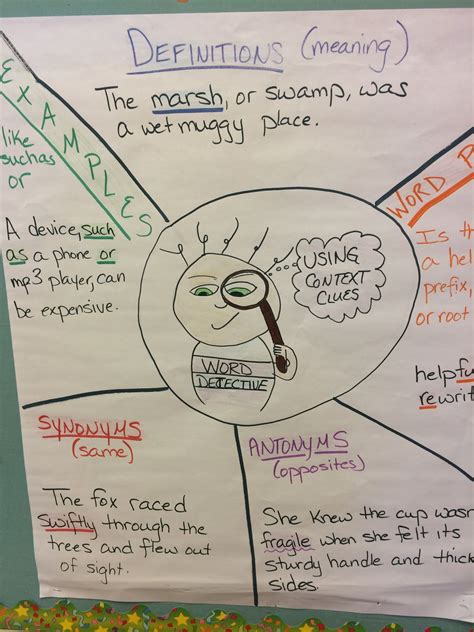 DEFINITIONS (meaning)
The marsh, or swamp, was
a wet muggy place.
EXAMPLES
like
such as
or
A device, such
as a phone or
mp3 player, can
be expensive.
WORD P
Is th
a hel
prefix,
or root
helpfu
rewrit
USING
CONTEXT
CLUES
WORD
DETECTIVE
SYNONYMS
(same)
The fox raced
swiftly through the
trees and flew out
of sight.
ANTONYMS
(opposites)
She knew the cup wasn
fragile when she felt its
sturdy handle and thick
sides.